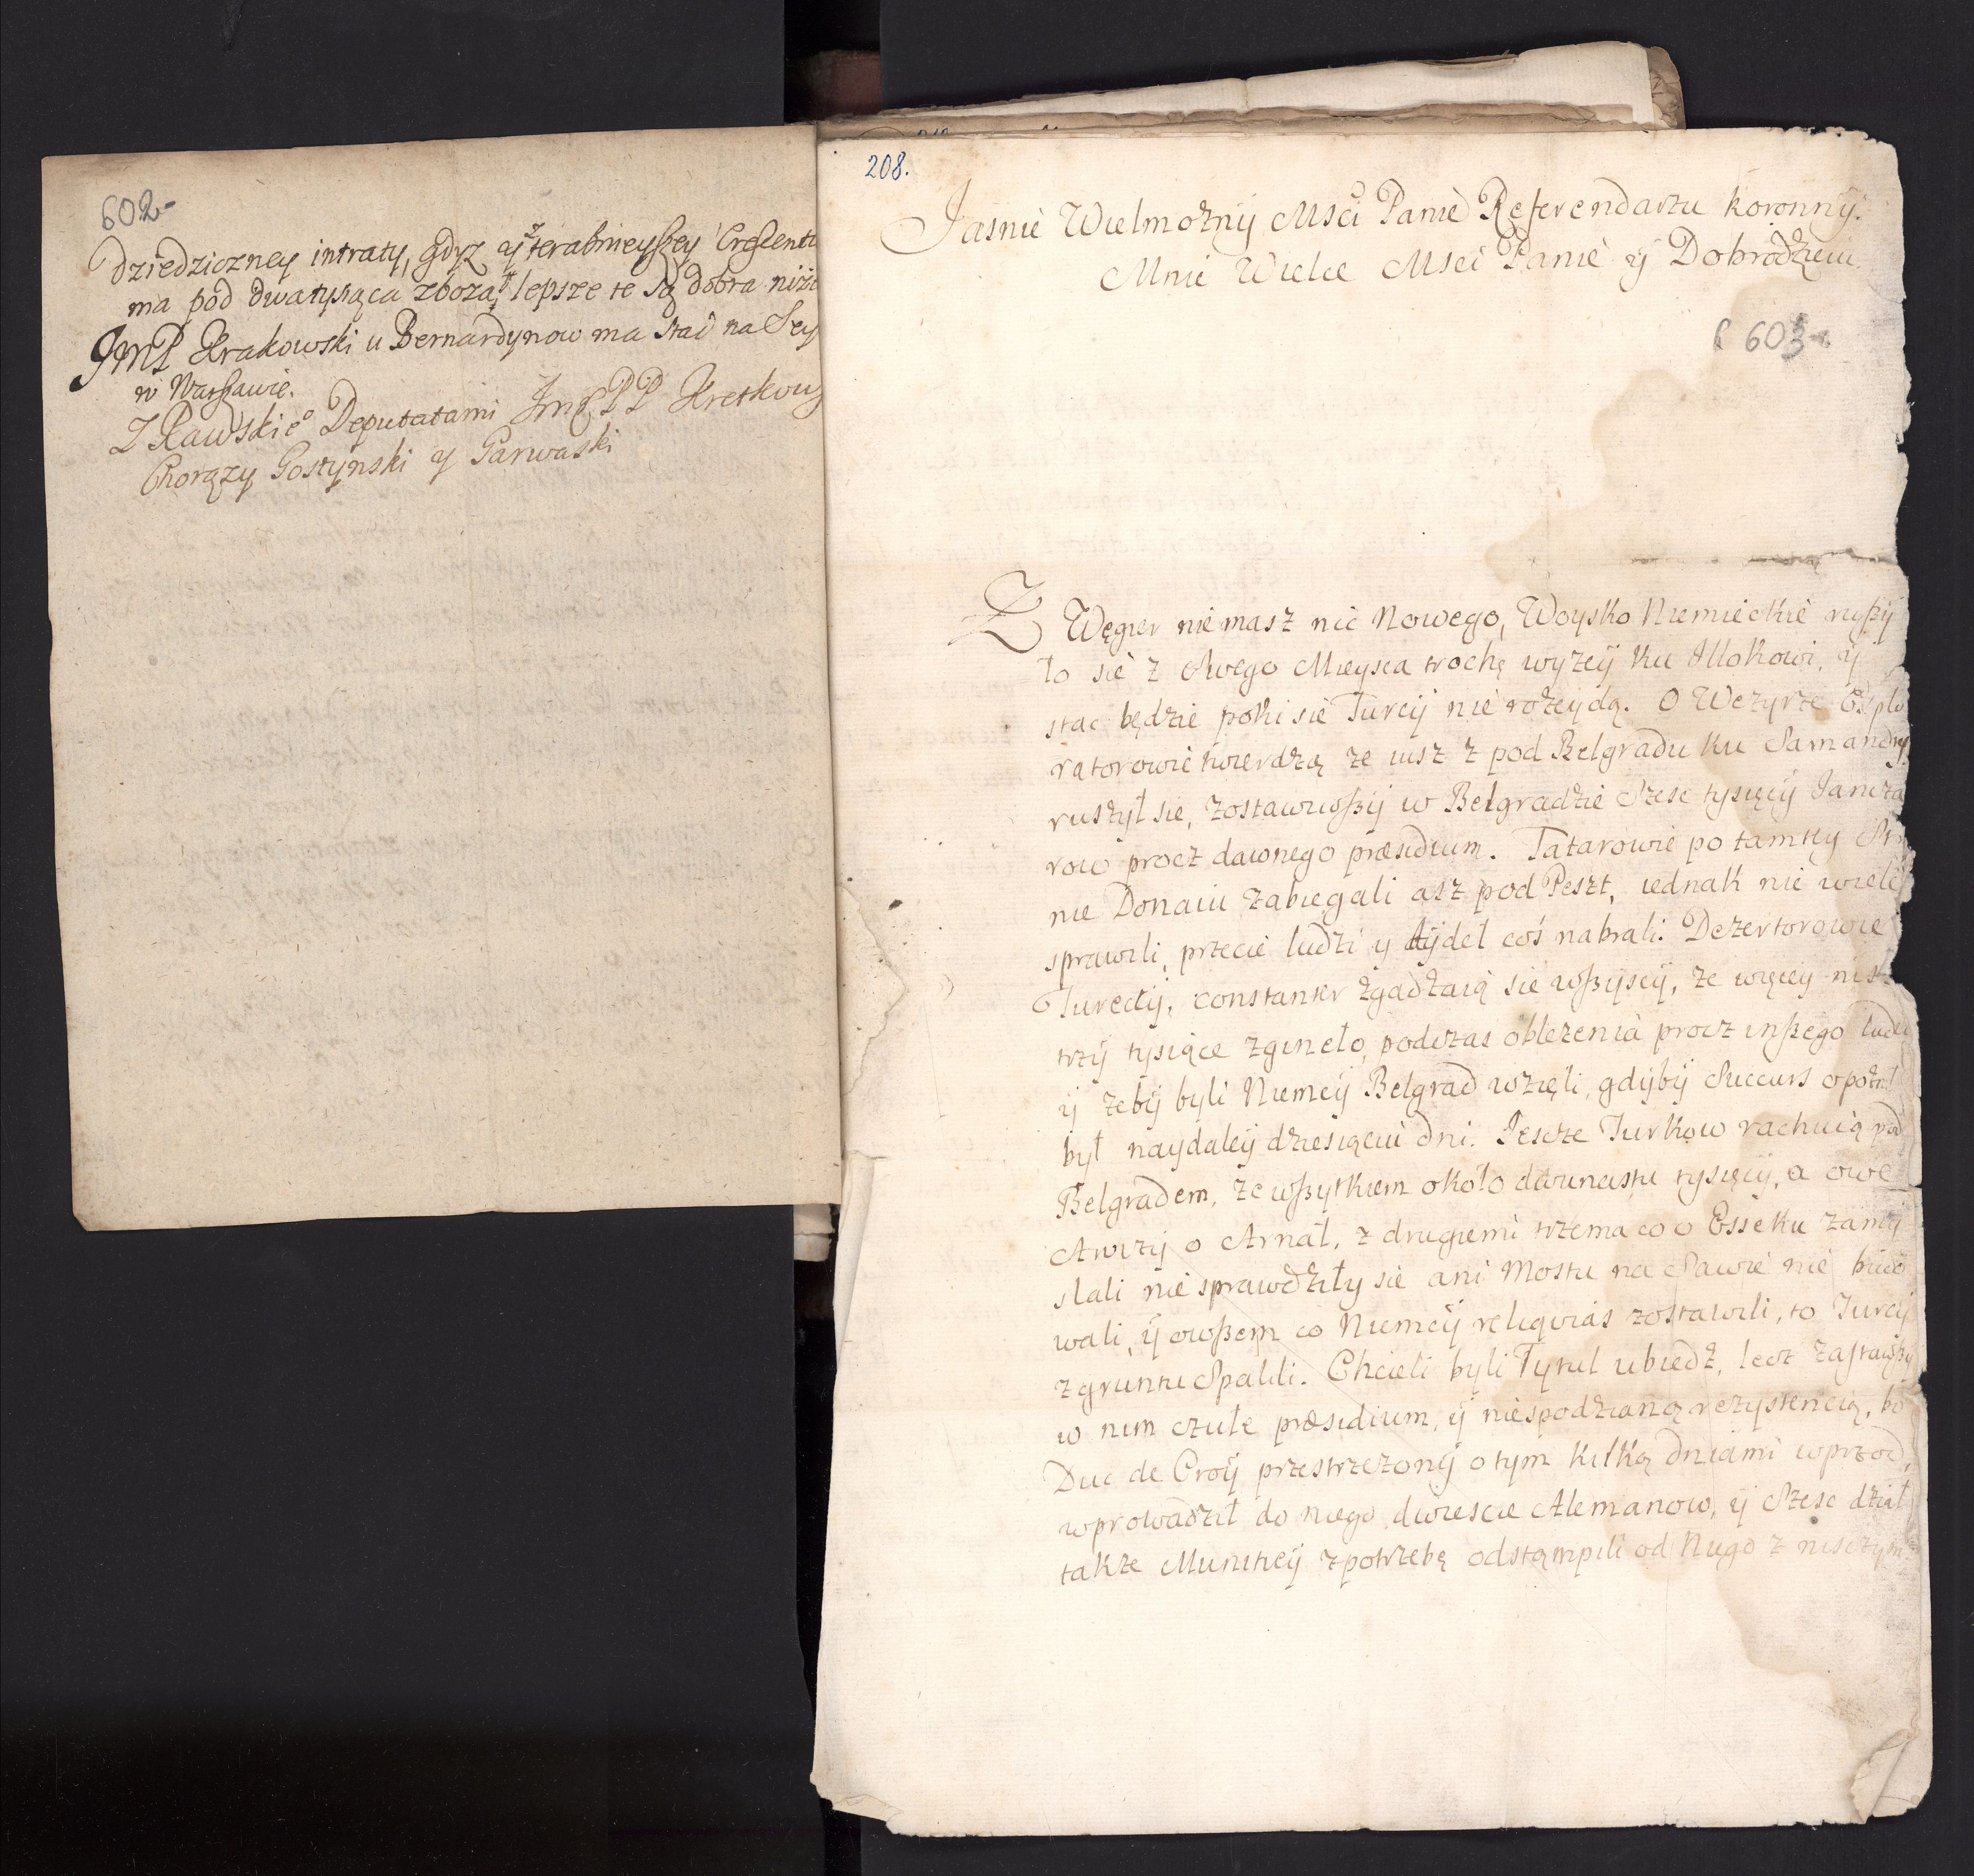 602
dziedziczney intraty, gdyz y terazniejszey Crescentij
ma pod dwatysiąca zboza, lepsze te są dobra niż
JmP Krakowski u Bernardynow ma stać na Sey
w Warszawie.
Z Rawskie° Deputatami JmPP Kretkow
Chorązy Gostynski y Garwaski
208.
Jasnie Wielmożnÿ Msći Panie Referendarzu Koronnÿ.
Mnie Wielce Msći Panie ÿ Dobrodzieiu
603
Z Węgier niemasz nic Nowego, Woysko Niemieckie rußÿ
ło sie z swego Mieysca trochę wyżeÿ ku Illokowi, ÿ
stać będzie poki sie Turcÿ nie rozeydą. O Wezyrze Explo
ratorowie twierdzą ze iusz z pod Belgradu ku Samandry
ruszył sie, zostawiwßÿ w Belgradzie szesc tysięcÿ Jancza
row procz dawnego præsidium. Tatarowie po tamtey str
nie Donaiu zabiegali asz pod Peszt, iednak nie wiele
sprawili, przecie ludzi y bydeł coś nabrali. Dezertorowie
Tureccÿ, constanter zgadzaią sie wßÿscÿ, ze więceÿ nisz
trzÿ tysiące zgineło podczas oblezenia procz inßego ludu
ÿ zebÿ byli Niemcÿ Belgrad wzięli, gdÿbÿ Succurs opoźn
był naydaleÿ dziesięciu dni. Jescze Turkow rachuią pod
Belgradem, ze wßytkiem około dwunastu tysięcÿ, a owe
Awizÿ o Arnał, z drugiemi trzema co o Esseku zamÿ
slali nie sprawdziły sie ani Mostu na Sawie nie budo
wali, ÿ owßem co Niemcÿ reliquias zostawili, to Turcÿ
z gruntu spalili. Chcieli byli Tytul ubiedz, lecz zastawßÿ
w nim czułe præsidium, ÿ niespodzianą rezystencią, bo
Duc de Croÿ przestrzezonÿ o tym kilką dniami wprzod,
wprowadził do niego dwiescie Alemanow, ÿ szesc dział
takze Municÿ z potrzebę odstąmpili od niego z nisczym